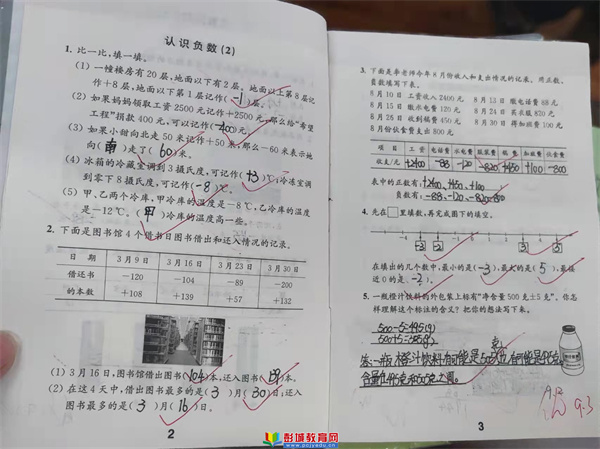 认识负数(2)
1. 比一比,填一填。
(1) 一幢楼房有20层,地面以下有2层。地面以上第8层记
作+8层,地面以下第1层记作( -1 )层。
(2) 如果妈妈领取工资2500元记作+2500元,那么给“希望
工程”捐款400元,可以记作( -400 )元。
(3) 如果小甜向北走50米记作+50米,那么-60米表示她
向( 南 )走了( 60 )米。
(4) 冰箱的冷藏室调到3摄氏度,可记作( +3 )℃;冷冻室调
到零下8摄氏度,可记作( -8 )℃。
(5) 甲、乙两个冷库,甲冷库的温度是-8℃,乙冷库的温度
是-12℃。( 甲 )冷库的温度高一些。
2. 下面是图书馆4个借书日图书借出和还入情况的记录。
日 期 3月9日 3月16日 3月23日 3月30日
借还书 -120 -104 -89 -200
的本数 +108 +139 +57 +132
(1) 3月16日,图书馆借出图书( 104 )本,还入图书( 139 )本。
(2) 在这4天中,借出图书最多的是( 3 )月( 30 )日;还入
图书最多的是( 3 )月( 16 )日。
2
3. 下面是李老师今年8月份收入和支出情况的记录。用正数、
负数填写下表。
8月10日 工资收入2400元 8月13日 缴电话费88元
8月15日 缴水电费120元 8月24日 买衣服820元
8月26日 收到稿费450元 8月30日 得加班费100元
8月份伙食费支出800元
项 目 工 资 电话费 水电费 服装费 稿 费 加班费 伙食费
收支/元 +2400 -88 -120 -820 +450 +100 -800
表中的正数有: +2400、+450、+100
负数有: -88、-120、-820、-800
4. 先在□里填数,再完成图下的填空。
-4 -3 -2 1 3 4 5
在填出的几个数中,最小的是( -3 ),最大的是( 5 ),最接
近0的是( -2 )。
5. 一瓶橙汁饮料的外包装上标有“净含量500克±5克”。你怎
样理解这个标注的含义?把你的想法写下来。
500-5=495(g)
500+5=505(g)
答:一瓶橙汁饮料可能是505克,有可能是495克,
含量在495克和505克之间。
9.3
3
彭城教育网
www.pcjyedu.cn